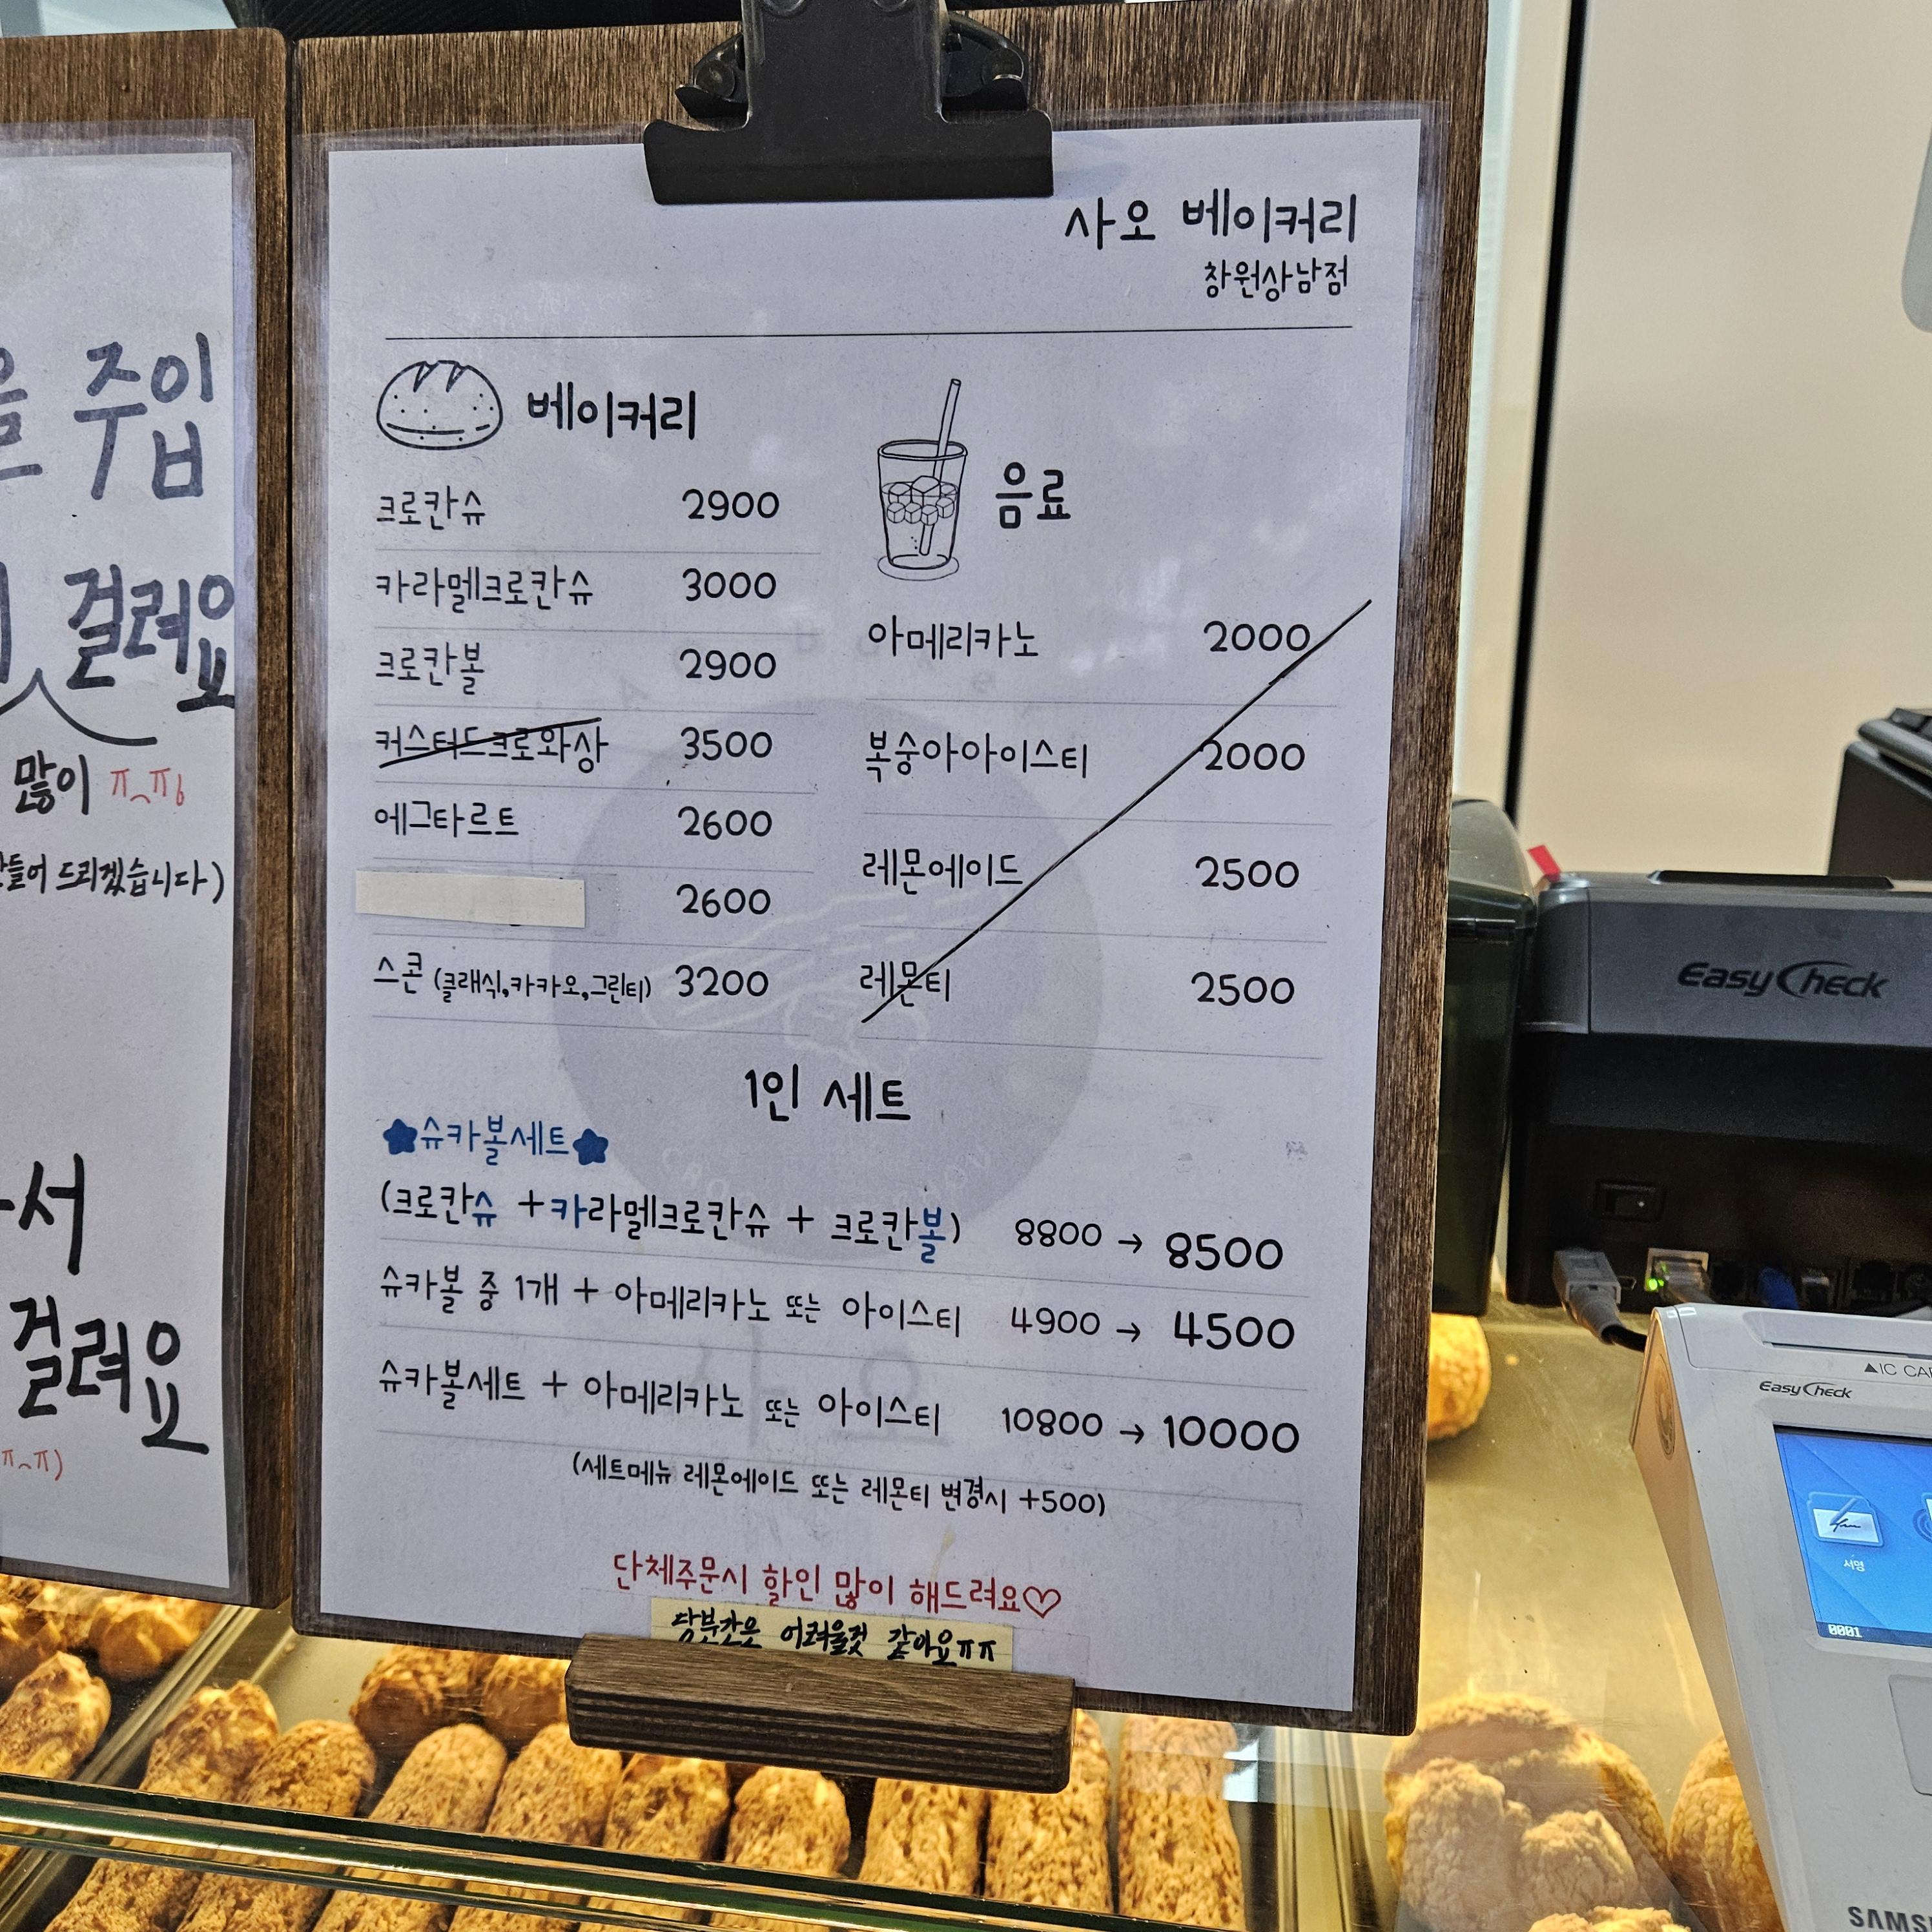 주입
걸려요
많이 ㅠ^ㅠ
들어 드리겠습니다)
서
걸려요
ㅠ^ㅠ)
사오 베이커리
창원상남점
베이커리
크로칸슈 2900
카라멜크로칸슈 3000
크로칸볼 2900
커스터드크로와상 3500
에그타르트 2600
2600
스콘 (클래식,카카오,그린티) 3200
음료
아메리카노 2000
복숭아아이스티 2000
레몬에이드 2500
레몬티 2500
1인 세트
★슈카볼세트★
(크로칸슈 +카라멜크로칸슈 + 크로칸볼) 8800 → 8500
슈카볼 중 1개 + 아메리카노 또는 아이스티 4900 → 4500
슈카볼세트 + 아메리카노 또는 아이스티 10800 → 10000
(세트메뉴 레몬에이드 또는 레몬티 변경시 +500)
단체주문시 할인 많이 해드려요♡
당분간은 어려울것 같아요ㅠㅠ
EasyCheck
IC CAR
EasyCheck
서명
0001
SAMS